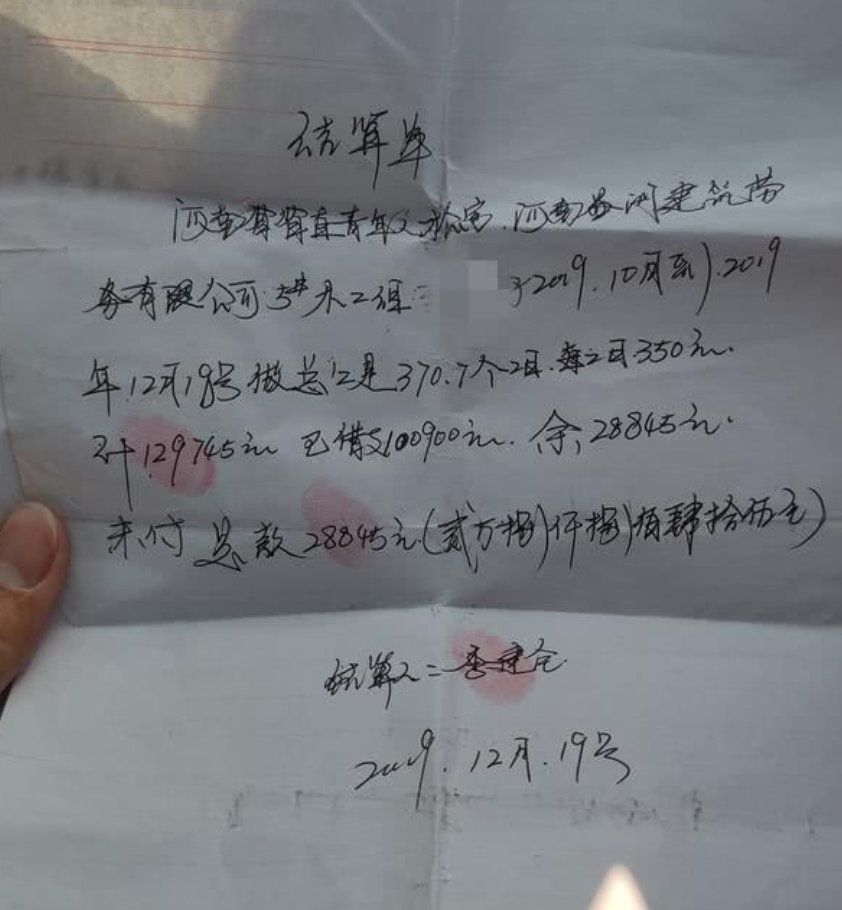 结算单
河南省省直青年人才公寓.河南黄河建筑劳
务有限公司:5#木工组: 于2019.10月到.2019
年.12月19号做总工是370.7个工日.每工日350元.
计129745元 已借支100900元. 余28845元.
未付总款28845元(贰万捌仟捌佰肆拾伍元)
结算人:李建仓
2019.12月.19号